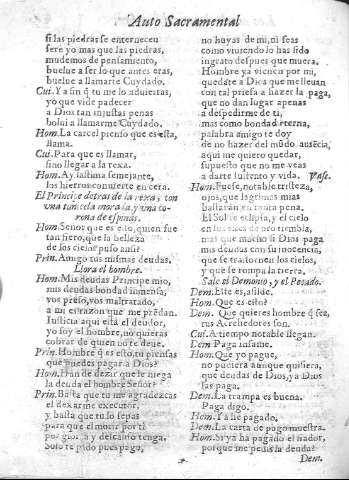 Auto Sacramental
si las piedras se enternecen
sere yo mas que las piedras,
mudemos de pensamiento,
buelue a ser lo que antes eras,
buelue a llamarte Cuydado.
Cui. Ya sin q̃ tu me lo aduiertas,
yo que vide padecer
a Dios tan injustas penas
bolui a llamarme Cuydado.
Hom. La carcel pienso que es esta,
llama.
Cui. Para que es llamar,
sino llegar a la rexa.
Hom. Ay lastima semejante,
los hierros conuierte en cera.
El Principe detras de la rexa, con
vna tunicela morada, y vna co-
rona de espinas.
Hom. Señor que es esto, quien fue
tan fiero, que la belleza
de los cielos puso ansi?
Prin. Amigo tus mismas deudas.
Llora el hombre.
Hom. Mis deudas Principe mio,
mis deudas bondad inmensa,
vos preso, vos maltratado,
a mi es razon que me prẽdan.
Iusticia aqui està el deudor,
yo soy el hombre, no quieras
cobrar de quien no te deue.
Prin. Hombre q̃ es esto, tu piensas
que puedes pagar a Dios?
Hom. Han de dezir que te niega
la deuda el hombre Señor?
Prin. Basta que tu me agradezcas
el dexarme executar,
y basta que tu lo sepas
para que el morir por ti
por gloria y descanso tenga,
Solo te pido pues pago,
no huyas de mi, ni seas
como viuiendo lo has sido
ingrato despues que muera.
Hombre ya vienen por mi,
quedate a Dios que me lleuan
con tal priesa a hazer la paga,
que no dan lugar apenas
a despedirme de ti,
mas como bondad eterna,
palabra amigo te doy
de no hazer del mũdo ausẽcia,
aqui me quiero quedar,
supuesto que no me veas
a darte sustento y vida. Vase.
Hom. Fuese, notable tristeza,
ojos, que lagrimas mias
bastaràn en tanta pena,
El Sol se eclipsa, y el cielo
en los exes de oro tiembla,
mas que mucho si Dios paga
mis deudas con su inocencia,
que se trastornen los cielos,
y que se rompa la tierra.
Sale el Demonio, y el Pecado.
Dem. Este es, asilde.
Hom. Que es esto?
Dem. Que quieres hombre q̃ sea,
tus Acrehedores son.
Cui. A tiempo notable llegan.
Dem. Paga infame.
Hom. Que yo pague,
no pudiera aunque quisiera,
que deudas de Dios, ya Dios
las paga.
Dem. La trampa es buena.
Paga digo.
Hom. Ya he pagado,
Dem. La carta de pago muestra.
Hom. Si ya ha pagado el fiador,
porque me pedis la deuda?
Dem.